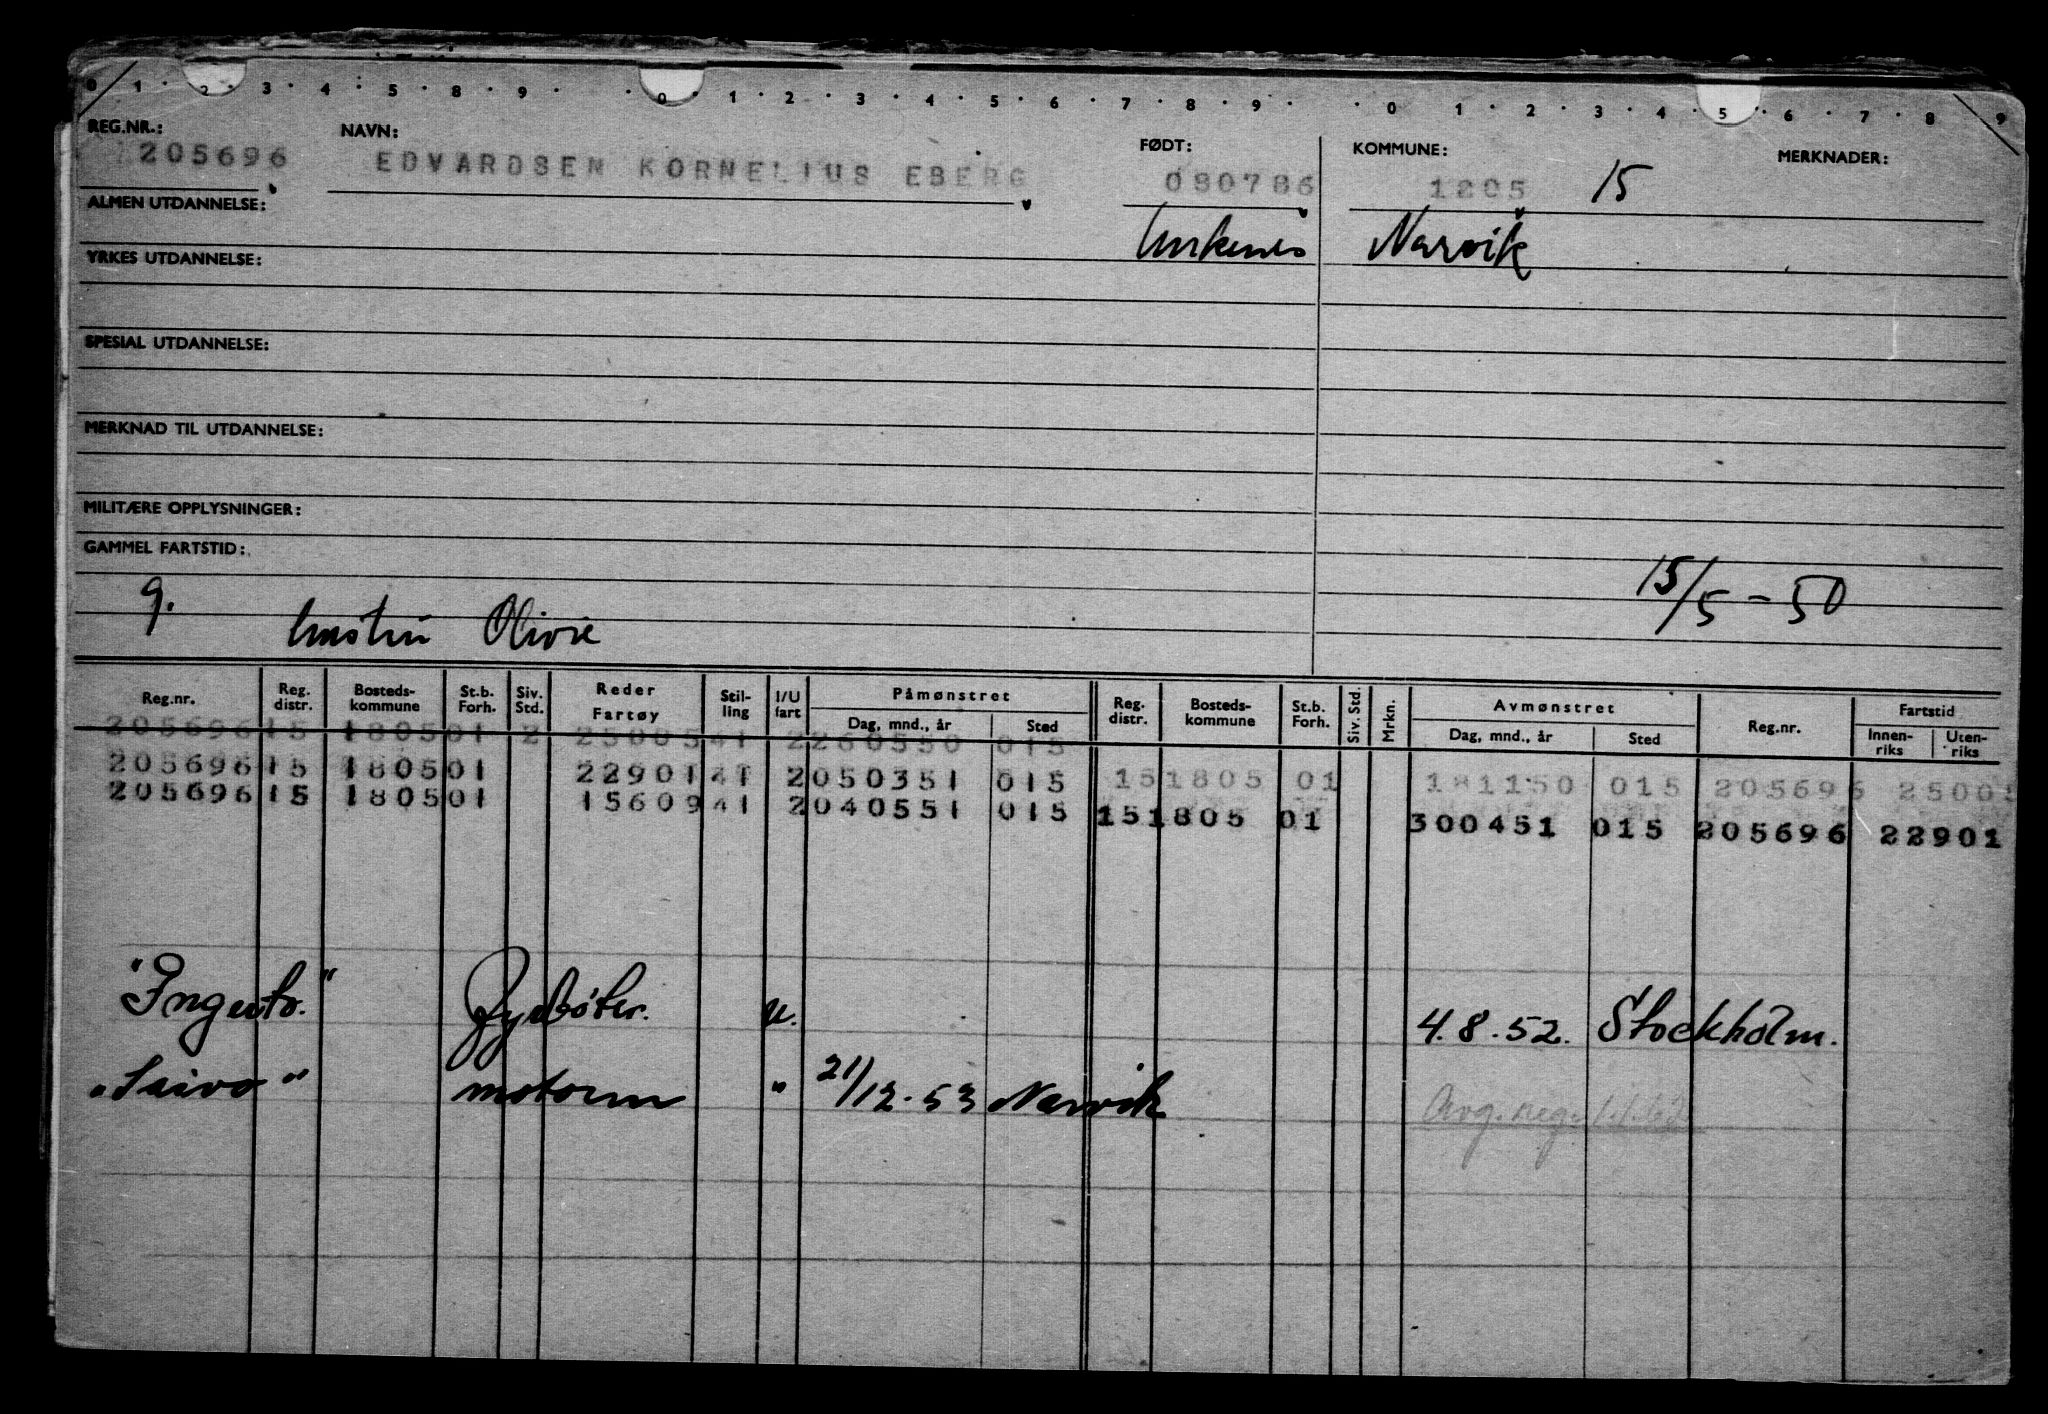 0 1 2 3 4 5 8 9 0 1 2 3 4 5 6 7 8 9 0 1 2 3 4 5 6 7 8 9
REG.NR.: NAVN: FØDT: KOMMUNE: MERKNADER:
205696 EDVARDSEN KORNELIUS EBERG 090786 1805 15
ALMEN UTDANNELSE: Narvik
YRKES UTDANNELSE:
SPESIAL UTDANNELSE:
MERKNAD TIL UTDANNELSE:
MILITÆRE OPPLYSNINGER:
GAMMEL FARTSTID:
15/5-50
g. Olivie
Reg.nr. Reg. distr. Bosteds-kommune St.b. Forh. Siv. Std. Reder Fartøy Stil-ling I/U fart Påmønstret Dag, mnd., år Sted Reg. distr. Bosteds-kommune St.b. Forh. Siv. Std. Mrkn. Avmønstret Dag, mnd., år Sted Reg.nr. Fartstid Innen-riks Uten-riks
205696 15 1805 01 2 25005 41 2 260550 015
205696 15 1805 01 22901 41 2 050351 015 15 1805 01 181150 015 205696 25005
205696 15 1805 01 15609 41 2 040551 015 15 1805 01 300451 015 205696 22901
"Ingerto." Fyrbøter. u. 4.8.52. Stockholm.
"Saivo" motorm " 21/12-53 Narvik